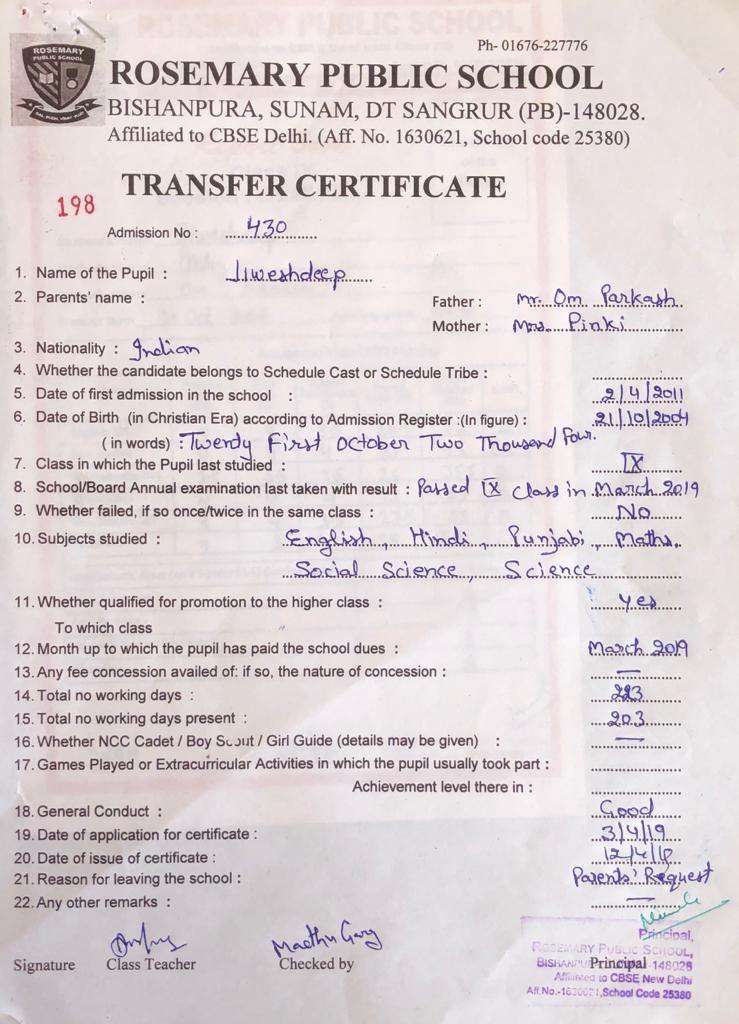 Ph- 01676-227776
ROSEMARY PUBLIC SCHOOL
ROSEMARY PUBLIC SCHOOL
BISHANPURA, SUNAM, DT SANGRUR (PB)-148028.
Affiliated to CBSE Delhi. (Aff. No. 1630621, School code 25380)
TRANSFER CERTIFICATE
198
Admission No : 430
1. Name of the Pupil : Jiweshdeep
2. Parents' name : Father : Mr. Om Parkash
Mother : Mrs. Pinki
3. Nationality : Indian
4. Whether the candidate belongs to Schedule Cast or Schedule Tribe :
5. Date of first admission in the school : 2/4/2011
6. Date of Birth (in Christian Era) according to Admission Register :(In figure) : 21/10/2004
( in words) : Twenty First October Two Thousand Four.
7. Class in which the Pupil last studied : IX
8. School/Board Annual examination last taken with result : Passed IX Class in March 2019
9. Whether failed, if so once/twice in the same class : No
10. Subjects studied : English, Hindi, Punjabi, Maths,
Social Science, Science
11. Whether qualified for promotion to the higher class : yes
To which class "
12. Month up to which the pupil has paid the school dues : March 2019
13. Any fee concession availed of: if so, the nature of concession : —
14. Total no working days : 223
15. Total no working days present : 203
16. Whether NCC Cadet / Boy Scout / Girl Guide (details may be given) : —
17. Games Played or Extracurricular Activities in which the pupil usually took part :
Achievement level there in :
18. General Conduct : Good
19. Date of application for certificate : 3/4/19
20. Date of issue of certificate : 12/4/19
21. Reason for leaving the school : Parents' Request
22. Any other remarks : —
Madhu Garg
Signature Class Teacher Checked by Principal
Principal,
ROSEMARY PUBLIC SCHOOL,
BISHANPU 148028
Affiliated to CBSE New Delhi
Aff.No.-1630621,School Code 25380